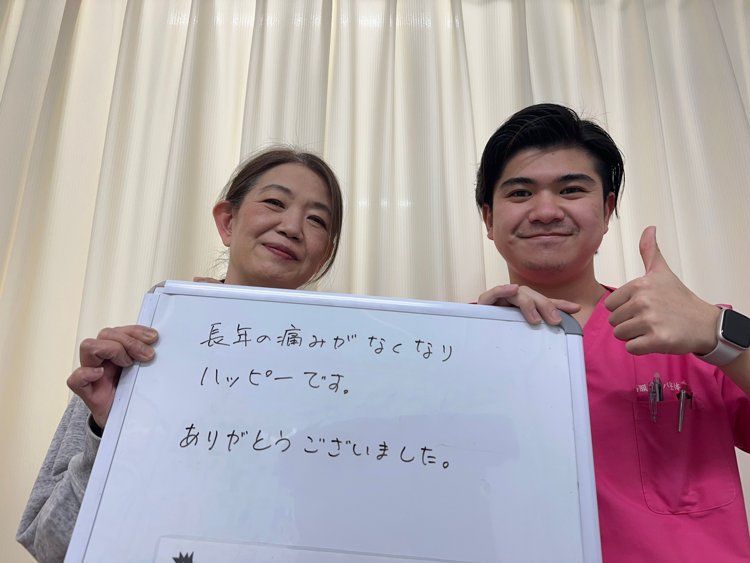 長年の痛みがなくなり
ハッピーです。
ありがとうございました。